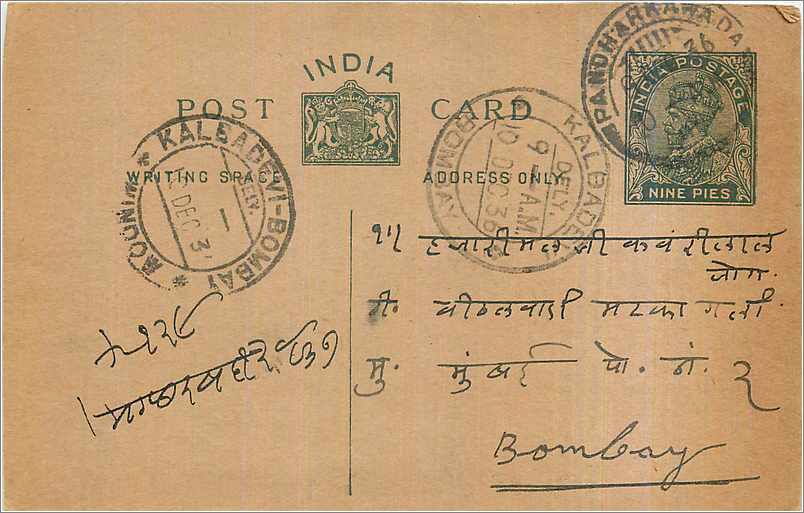 INDIA
POST CARD
WRITING SPACE ADDRESS ONLY
INDIA POSTAGE
NINE PIES
PANDHARKAWADA
36
KALBADEVI-BOMBAY
DELY.
DEC. 3
KALBADEVI
BOMBAY
DELY.
9 A.M.
10 DEC 36
हजारीमल जी कवंरीलाल
जोग
नं. वीठलवाडी मटका गली
मु. मुंबई पो. नं. २
Bombay